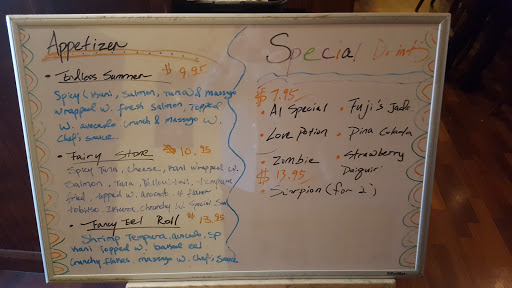 Appetizer
• Endless Summer $ 9.95
Spicy (Kani, Salmon, Tuna) & mango
wrapped w. fresh Salmon, Topped
w. avocado crunch & mango w.
Chef's sauce.
• Fairy Store $ 10.95
Spicy Tuna, Cheese, Kani wrapped w.
Salmon, Tuna, Yellowtail, Tempura
fried, topped w. avocado, 4 flavor
tobiko Ikura, Crunchy w. Special Sauce
• Fancy Eel Roll $ 13.95
Shrimp Tempura, avocado, sp
Kani Topped w. baked eel
Crunchy flakes, mango w. Chef's Sauce
Special Drinks
$ 7.95
• AI Special
• Love Potion
• Zombie
• Fuji's Jade
• Pina Colada
• Strawberry
Daiquiri
$ 13.95
• Scorpion (for 2)